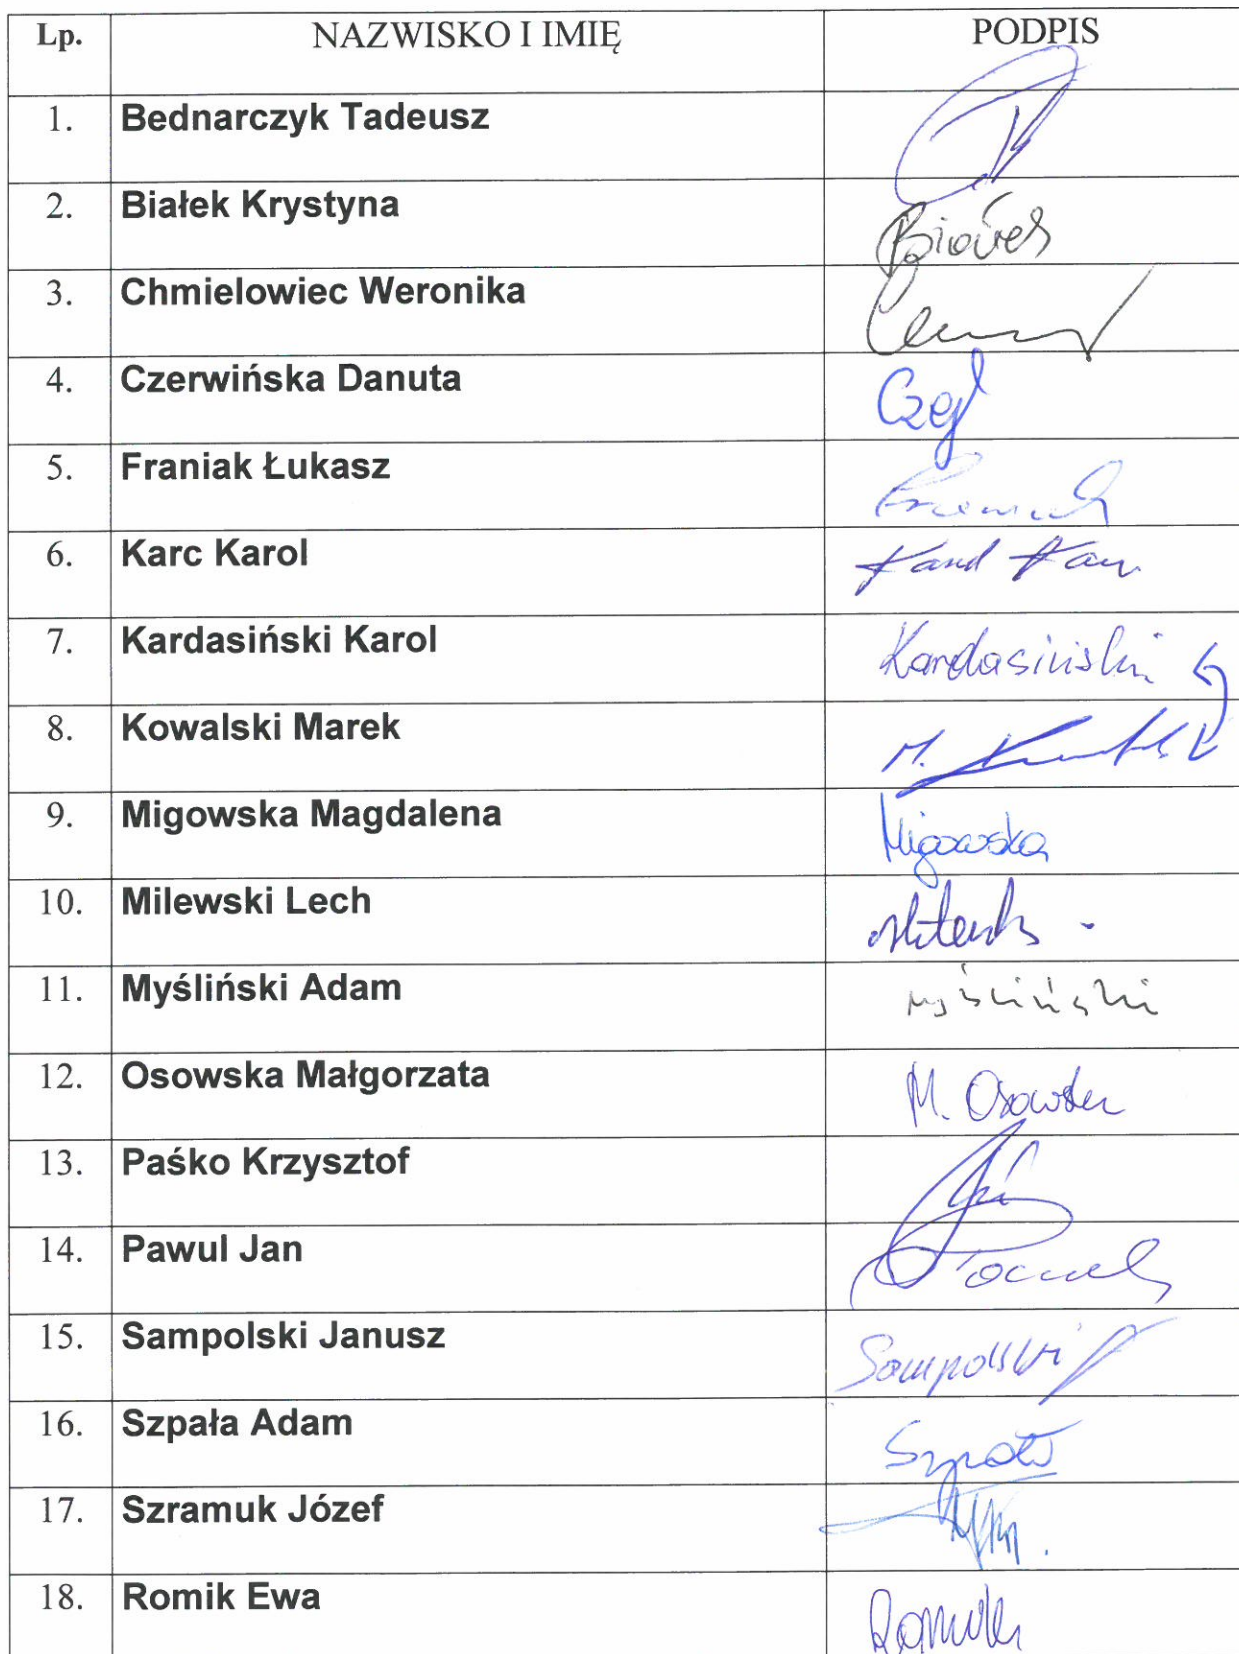 Lp. NAZWISKO I IMIĘ PODPIS
1. Bednarczyk Tadeusz
2. Białek Krystyna Białek
3. Chmielowiec Weronika
4. Czerwińska Danuta
5. Franiak Łukasz
6. Karc Karol
7. Kardasiński Karol Kardasiński
8. Kowalski Marek M.
9. Migowska Magdalena Migowska
10. Milewski Lech
11. Myśliński Adam Myśliński
12. Osowska Małgorzata M. Osowska
13. Paśko Krzysztof
14. Pawul Jan
15. Sampolski Janusz Sampolski
16. Szpała Adam Szpała
17. Szramuk Józef
18. Romik Ewa Romik